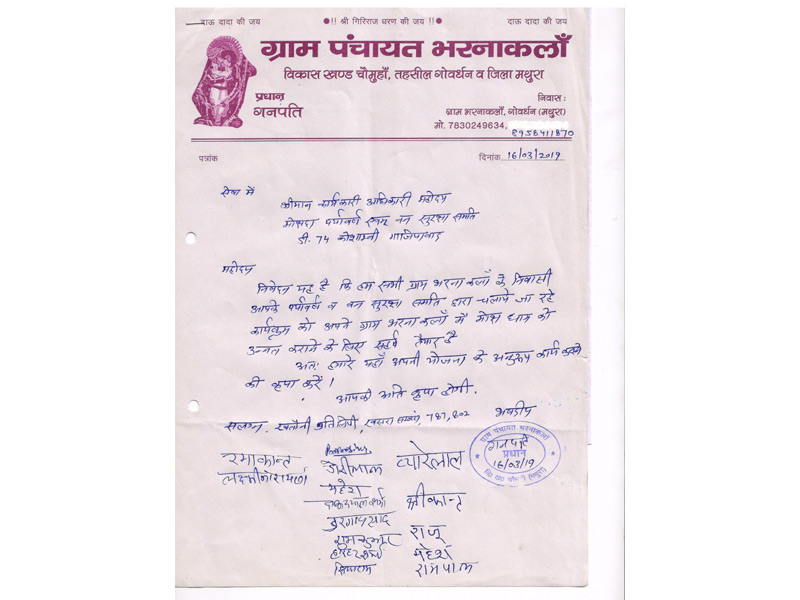 दाऊ दादा की जय !! श्री गिरिराज धरण की जय !! दाऊ दादा की जय
ग्राम पंचायत भरनाकलाँ
विकास खण्ड चौमुहाँ, तहसील गोवर्धन व जिला मथुरा
प्रधान
गनपति
निवास :
ग्राम भरनाकलाँ, गोवर्धन (मथुरा)
मो. 7830249634,
8958411870
पत्रांक
दिनांक 16/03/2019
सेवा में
श्रीमान कार्यकारी अधिकारी महोदय
मोक्षदा पर्यावरण एवम् वन सुरक्षा समिति
डी. 74 कौशाम्बी गाजियाबाद
महोदय
निवेदन यह है कि हम सभी ग्राम भरना कलाँ के निवासी
आपके पर्यावरण व वन सुरक्षा समिति द्वारा चलाये जा रहे
कार्यक्रम को अपने ग्राम भरना कलाँ में मोक्ष धाम को
उन्नत कराने के लिए सहर्ष तैयार है
अतः हमारे यहाँ अपनी योजना के अनुरूप कार्य करने
की कृपा करें !
आपकी अति कृपा होगी.
सलग्न. खतौनी प्रतिलिपी, खसरा संख्या, 787, 802 भवदीय
ग्राम पंचायत भरनाकलाँ
गनपति
प्रधान
16/03/19
रमाकान्त
लक्ष्मीनारायण
डोरीलाल प्यारेलाल
महेश
श्रीकान्त
दुर्गाप्रसाद
रामकुमार राजू
महेश
सियाराम रामपाल